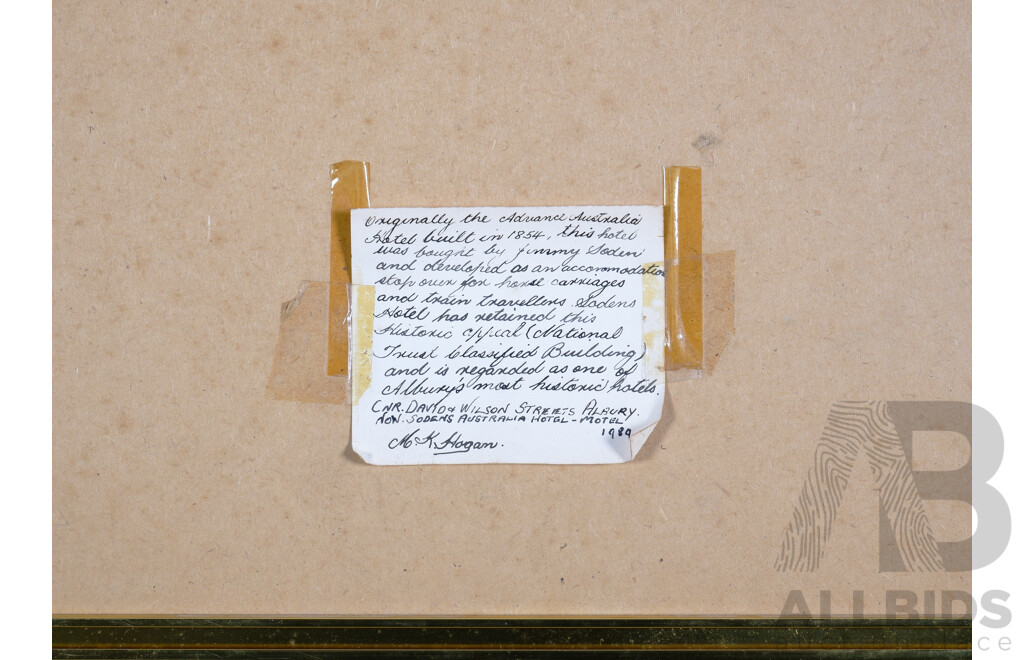 Originally the Advance Australia
Hotel built in 1854, this hotel
was bought by Jimmy Soden
and developed as an accommodation
stop over for horse carriages
and train travellers. Sodens
Hotel has retained this
Historic appeal (National
Trust Classified Building)
and is regarded as one of
Albury's most historic hotels.
CNR. DAVID & WILSON STREETS ALBURY.
NOW. SODENS AUSTRALIA HOTEL-MOTEL
1989
M. K. Hogan.
AB
ALLBIDS